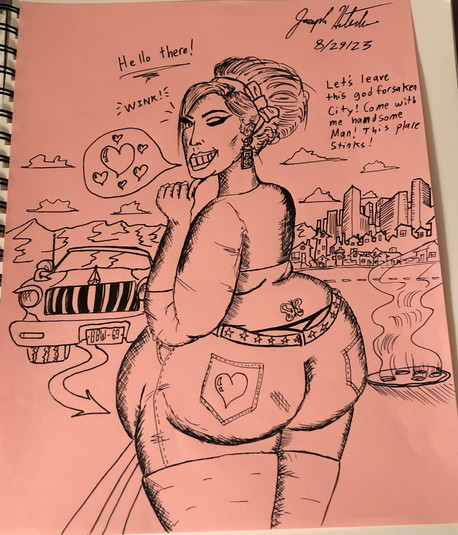 8/29/23
Hello there!
WINK!
Let's leave
this god forsaken
City! Come with
me handsome
Man! This place
Stinks!
BBW-69